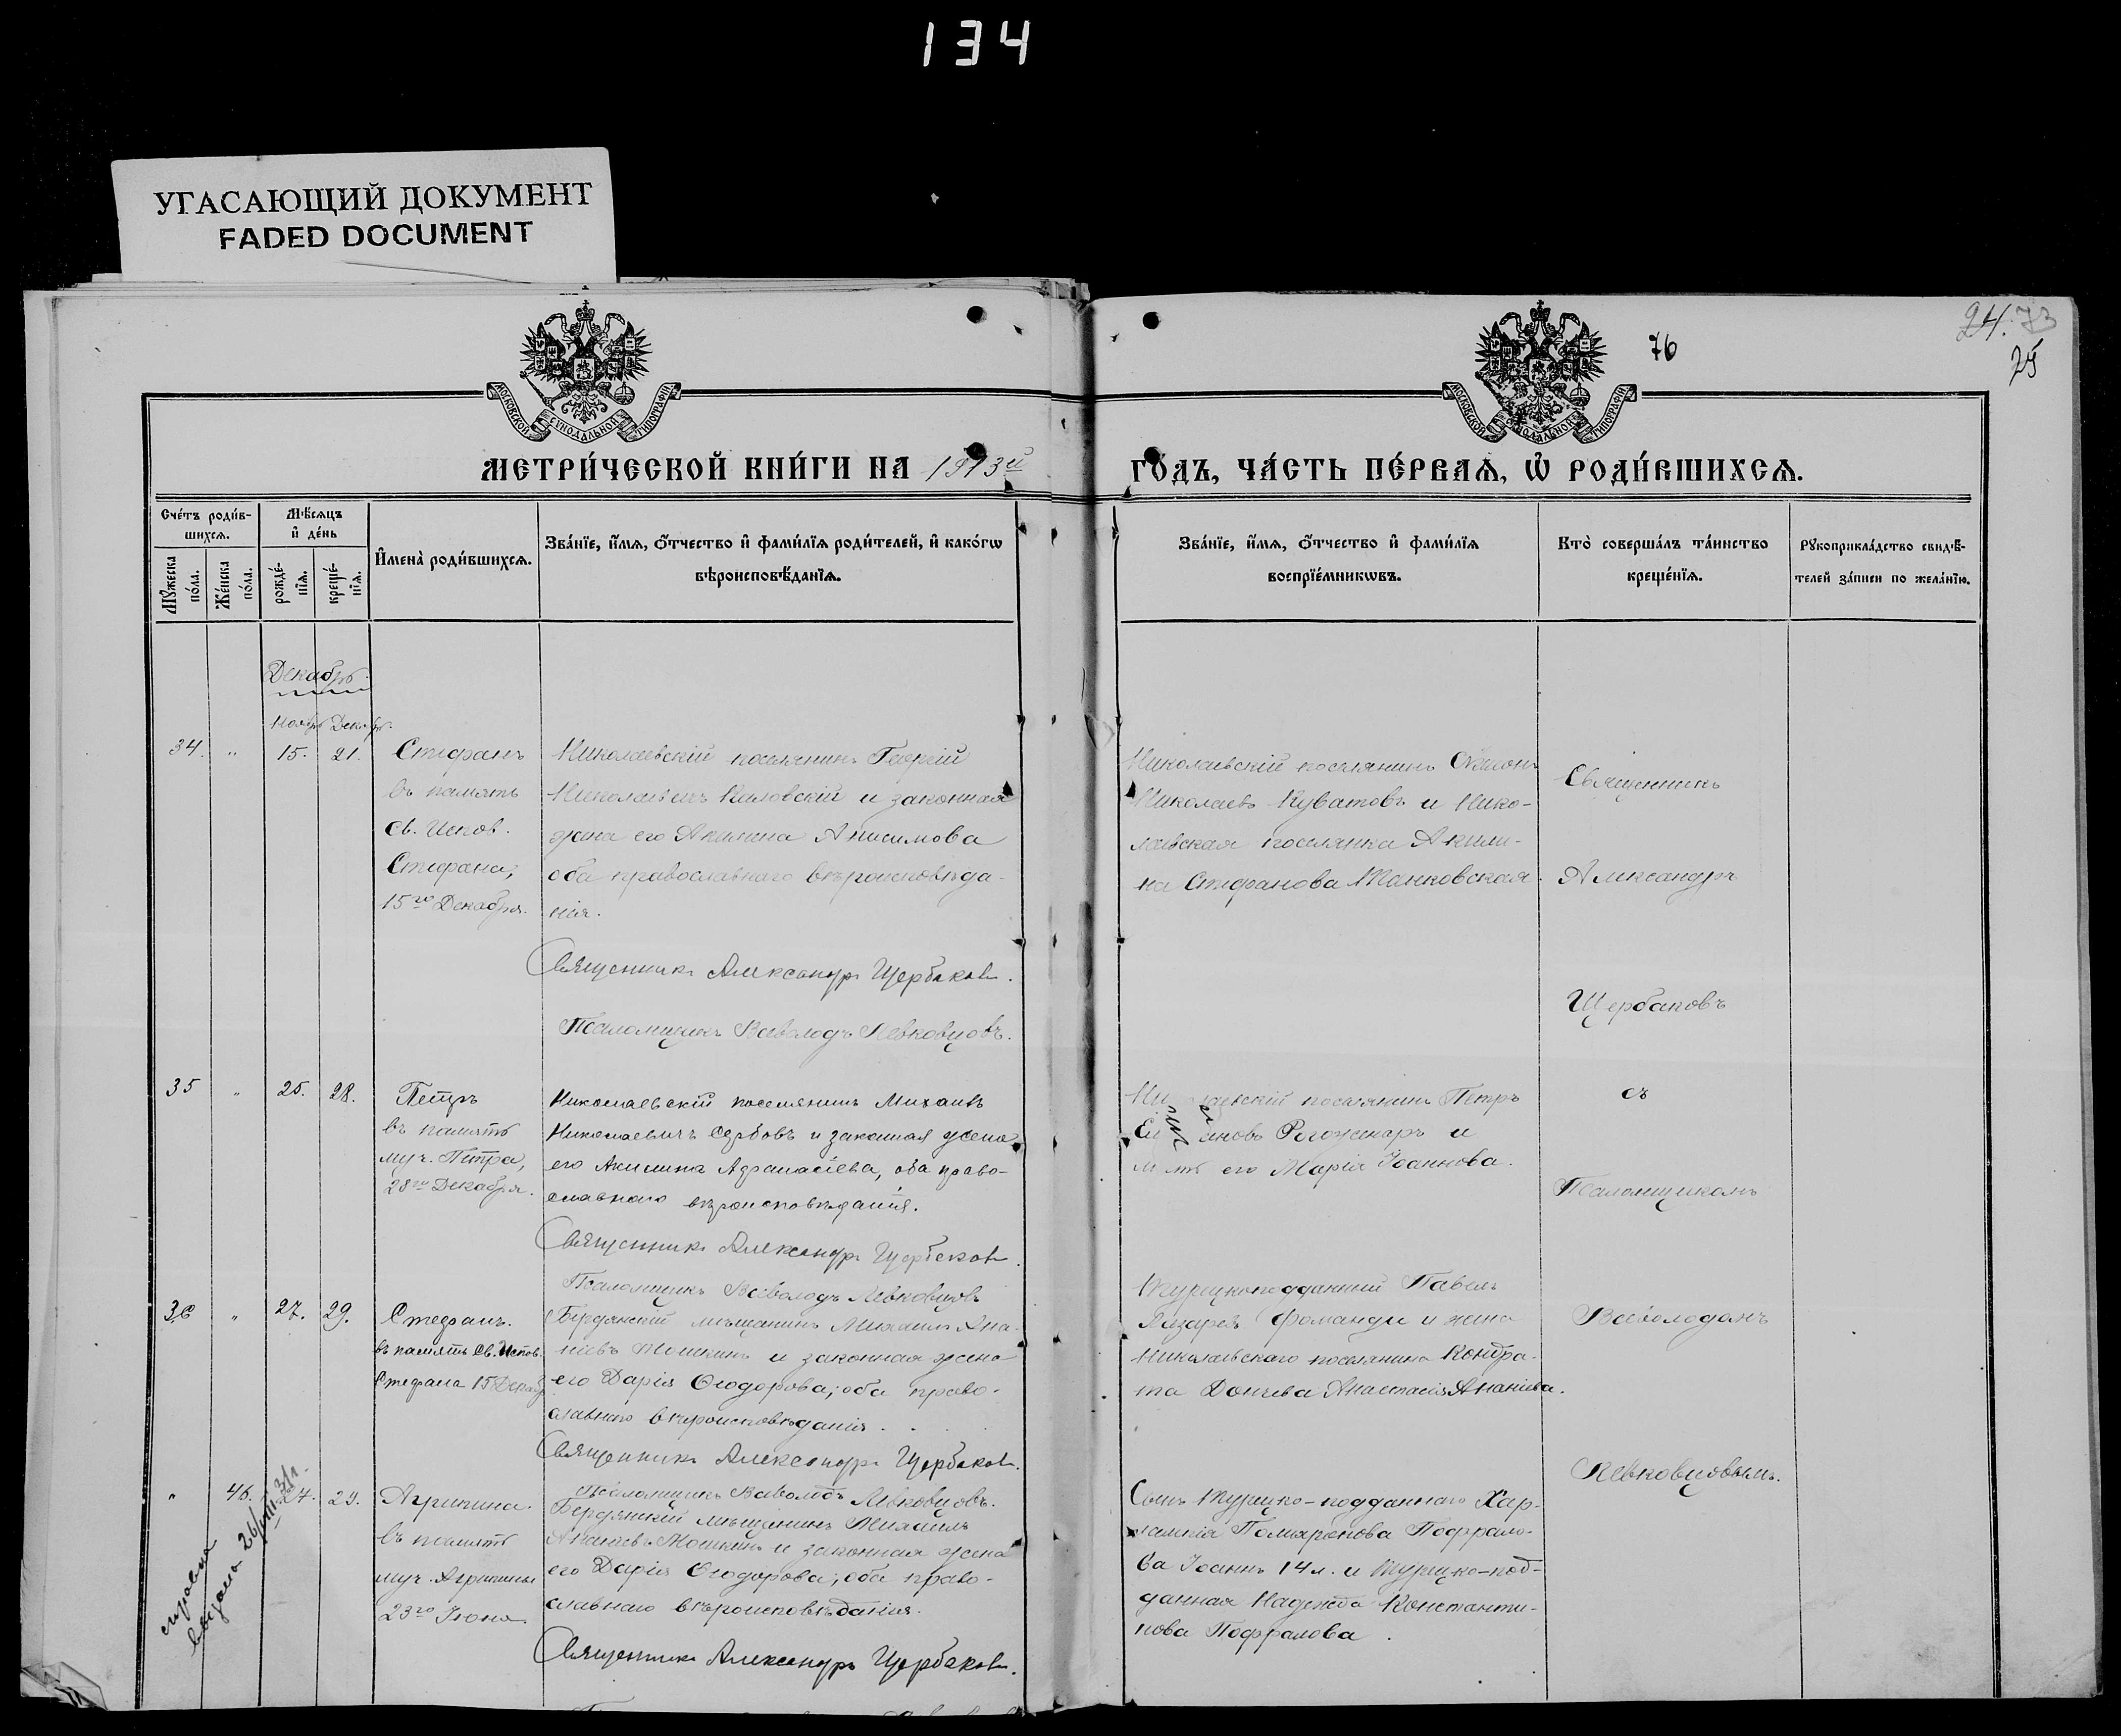 134
УГАСАЮЩИЙ ДОКУМЕНТ
FADED DOCUMENT
МОСКОВСКОЙ СѴНОДАЛЬНОЙ ТИПОГРАФІИ
МОСКОВСКОЙ СѴНОДАЛЬНОЙ ТИПОГРАФІИ
76
24. 73
75
МЕТРИ́ЧЕСКОЙ КНИ́ГИ НА 1913й
ГО́ДЪ, ЧА́СТЬ ПЕ́РВАѦ, Ѡ҆ РОДИ́ВШИХСѦ.
Сче́тъ роди́в-
шихсѧ.
Мꙋжеска по́ла.
Же́нска по́ла.
Мѣ́сѧцъ
и҆ де́нь
рожде́-
нїѧ.
креще́-
нїѧ.
И҆мена̀ роди́вшихсѧ.
Зва́нїе, и҆́мѧ, ѻ҆́тчество и҆ фами́лїѧ роди́телей, и҆ како́гѡ
вѣроисповѣ́данїѧ.
Зва́нїе, и҆́мѧ, ѻ҆́тчество и҆ фами́лїѧ
воспрїе́мникѡвъ.
Кто̀ соверша́лъ та́инство
креще́нїѧ.
Рꙋкоприкла́дство свидѣ́-
телей за́писи по жела́нїю.
Декабрь.
Ноябрь Декабрь.
34. „ 15. 21.
Стефанъ
въ память
св. Испов.
Стефана,
15го Декабря.
Николаевскій поселянинъ Георгій
Николаевичъ и законная
жена его Акилина Анисимова
оба православнаго вѣроисповѣда-
нія.
Священникъ Александръ Щербаковъ.
Псаломщикъ Всеволодъ Левковцовъ.
Николаевскій поселянинъ
Николаевъ Куватовъ и Нико-
лаевская поселянка Акили-
на Стефанова Танковская.
Священникъ
Александръ
Щербаковъ
съ
Псаломщикомъ
Всеволодомъ
Левковцовымъ.
35 „ 25. 28.
Петръ
въ память
муч. Петра,
28го Декабря.
Николаевскій поселянинъ Михаилъ
Николаевичъ Сербовъ и законная жена
его Акилина, оба право-
славнаго вѣроисповѣданія.
Священникъ Александръ Щербаковъ.
Псаломщикъ Всеволодъ Левковцовъ
поселянинъ Петръ
и
его Марія Іоаннова.
36 „ 27. 29.
Стефанъ.
въ память Св. Испов.
Стефана 15 Декаб.
Бердянскій мѣщанинъ Михаилъ Ана-
ніевъ Мошкинъ и законная жена
его Дарія Ѳеодорова; оба право-
славнаго вѣроисповѣданія.
Священникъ Александръ Щербаковъ.
Псаломщикъ Всеволодъ Левковцовъ.
Турецкоподданный Павелъ
Лазаревъ Фоманди и жена
Николаевскаго поселянина Кондра-
та Дончева Анастасія Ананіева.
„ 46. 27. 29.
Агрипина.
въ память
муч. Агрипины
23го Іюня.
Бердянскій мѣщанинъ Михаилъ
Ананіевъ Мошкинъ и законная жена
его Дарія Ѳеодорова; оба право-
славнаго вѣроисповѣданія.
Священникъ Александръ Щербаковъ.
Сынъ Турецко-подданнаго Хар-
лампія Подфало-
ва Іоаннъ 14 л. и Турецко-под-
данная Надежда Константи-
нова Подфалова.
справка
выдана